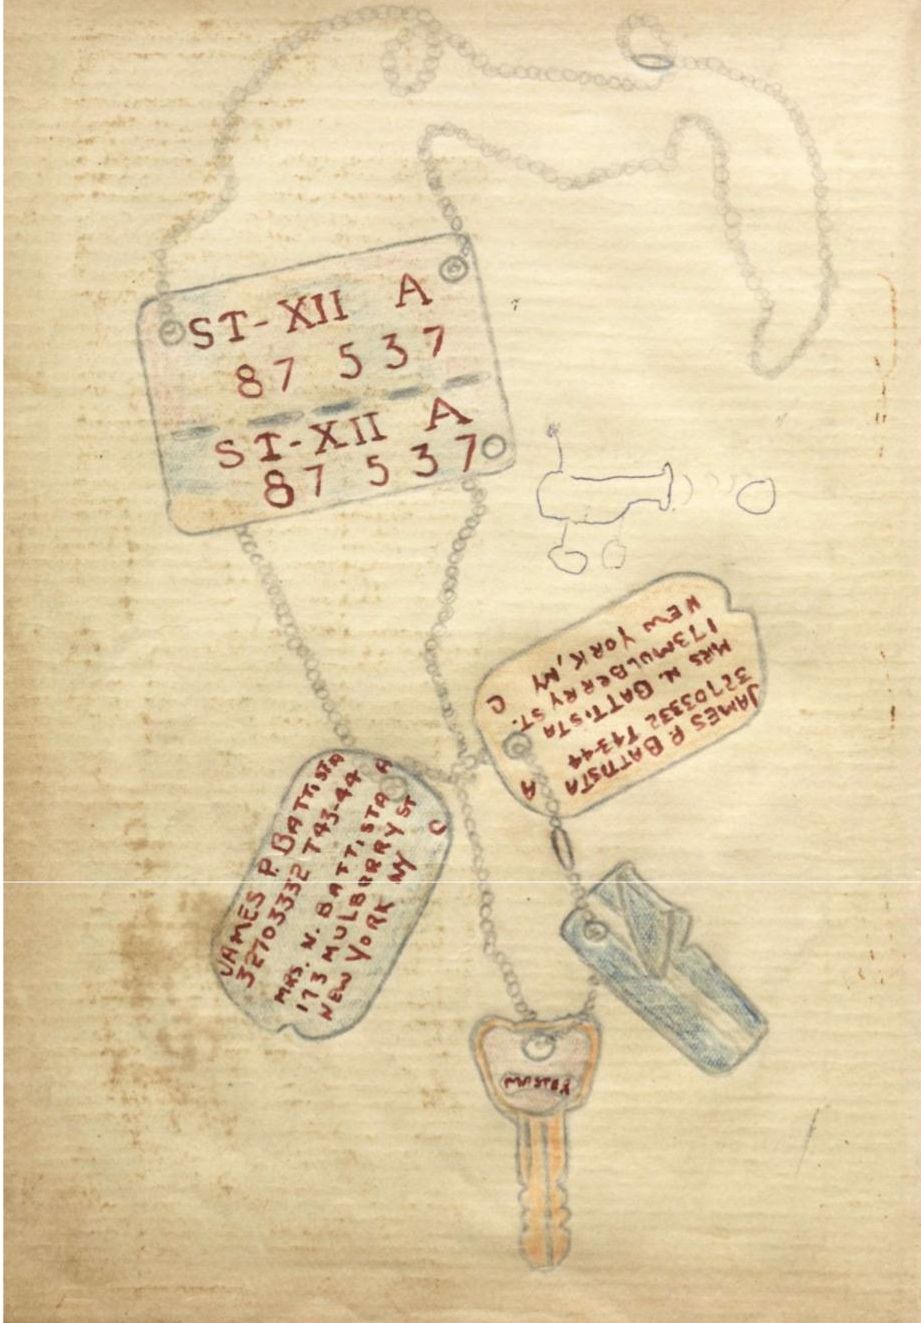 ST-XII A
87 537
ST-XII A
87 537
JAMES P. BATTISTA
32703332 T43-44
A
MRS N. BATTISTA
173 MULBERRY ST.
C
NEW YORK, NY
JAMES P. BATTISTA
32703332 T43-44
A
MRS. N. BATTISTA
173 MULBERRY ST
NEW YORK NY
C
MASTER